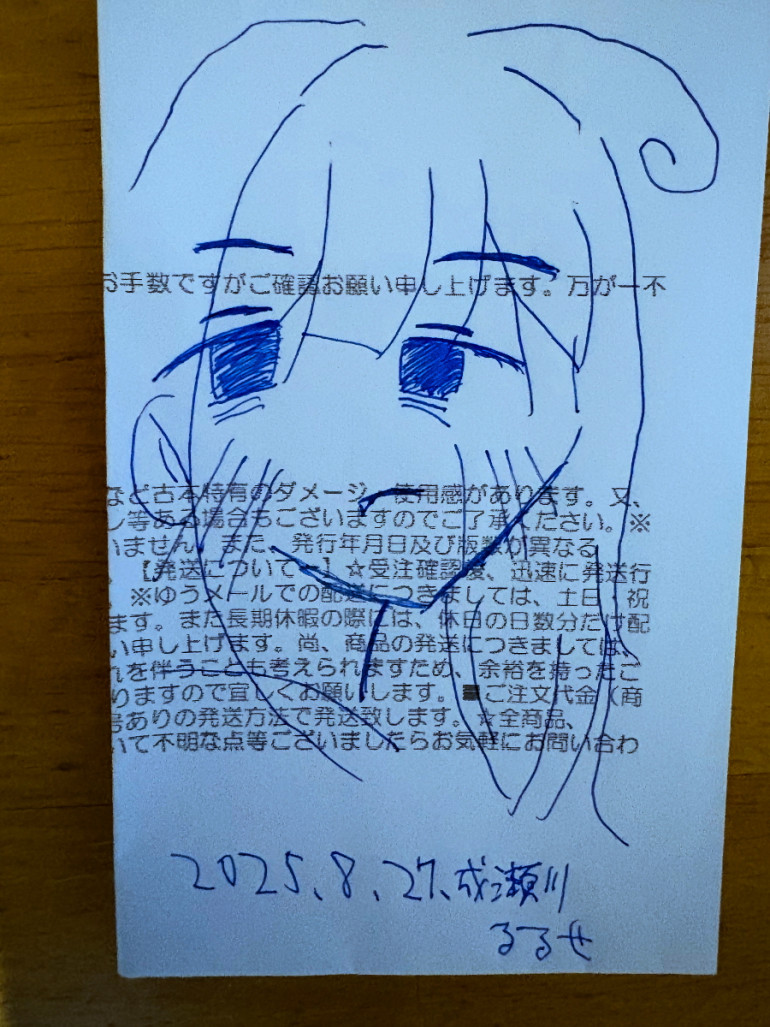 お手数ですがご確認お願い申し上げます。万が一不
など古本特有のダメージ、使用感があります。又、
し等ある場合もございますのでご了承ください。※
いません。また、発行年月日及び版数が異なる
【発送について】☆受注確認後、迅速に発送行
。※ゆうメールでの配達につきましては、土日、祝
ます。また長期休暇の際には、休日の日数分だけ配
い申し上げます。尚、商品の発送につきましては、
れを伴うことも考えられますため、余裕を持ったご
りますので宜しくお願いします。■ご注文代金（商
号ありの発送方法で発送致します。☆全商品、
いて不明な点等ございましたらお気軽にお問い合わ
2025.8.27.成瀬川
るるせ